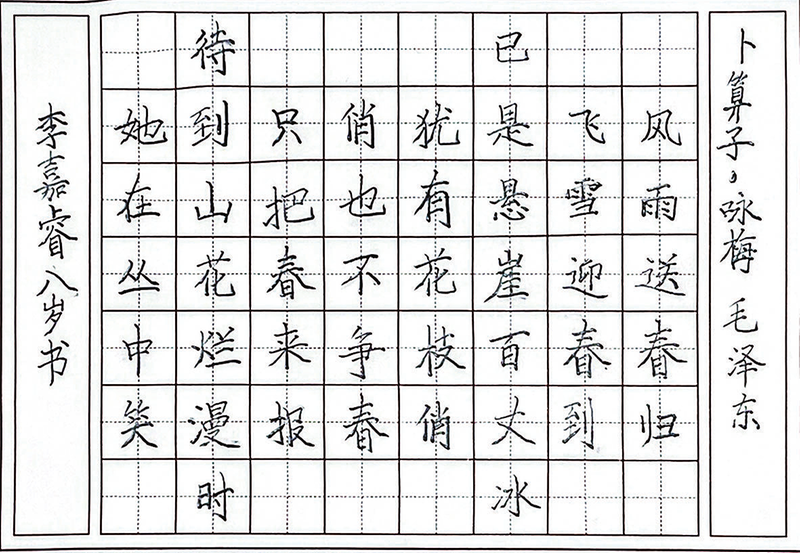 卜算子，咏梅 毛泽东
风雨送春归
飞雪迎春到
已是悬崖百丈冰
犹有花枝俏
俏也不争春
只把春来报
待到山花烂漫时
她在丛中笑
李嘉睿八岁书